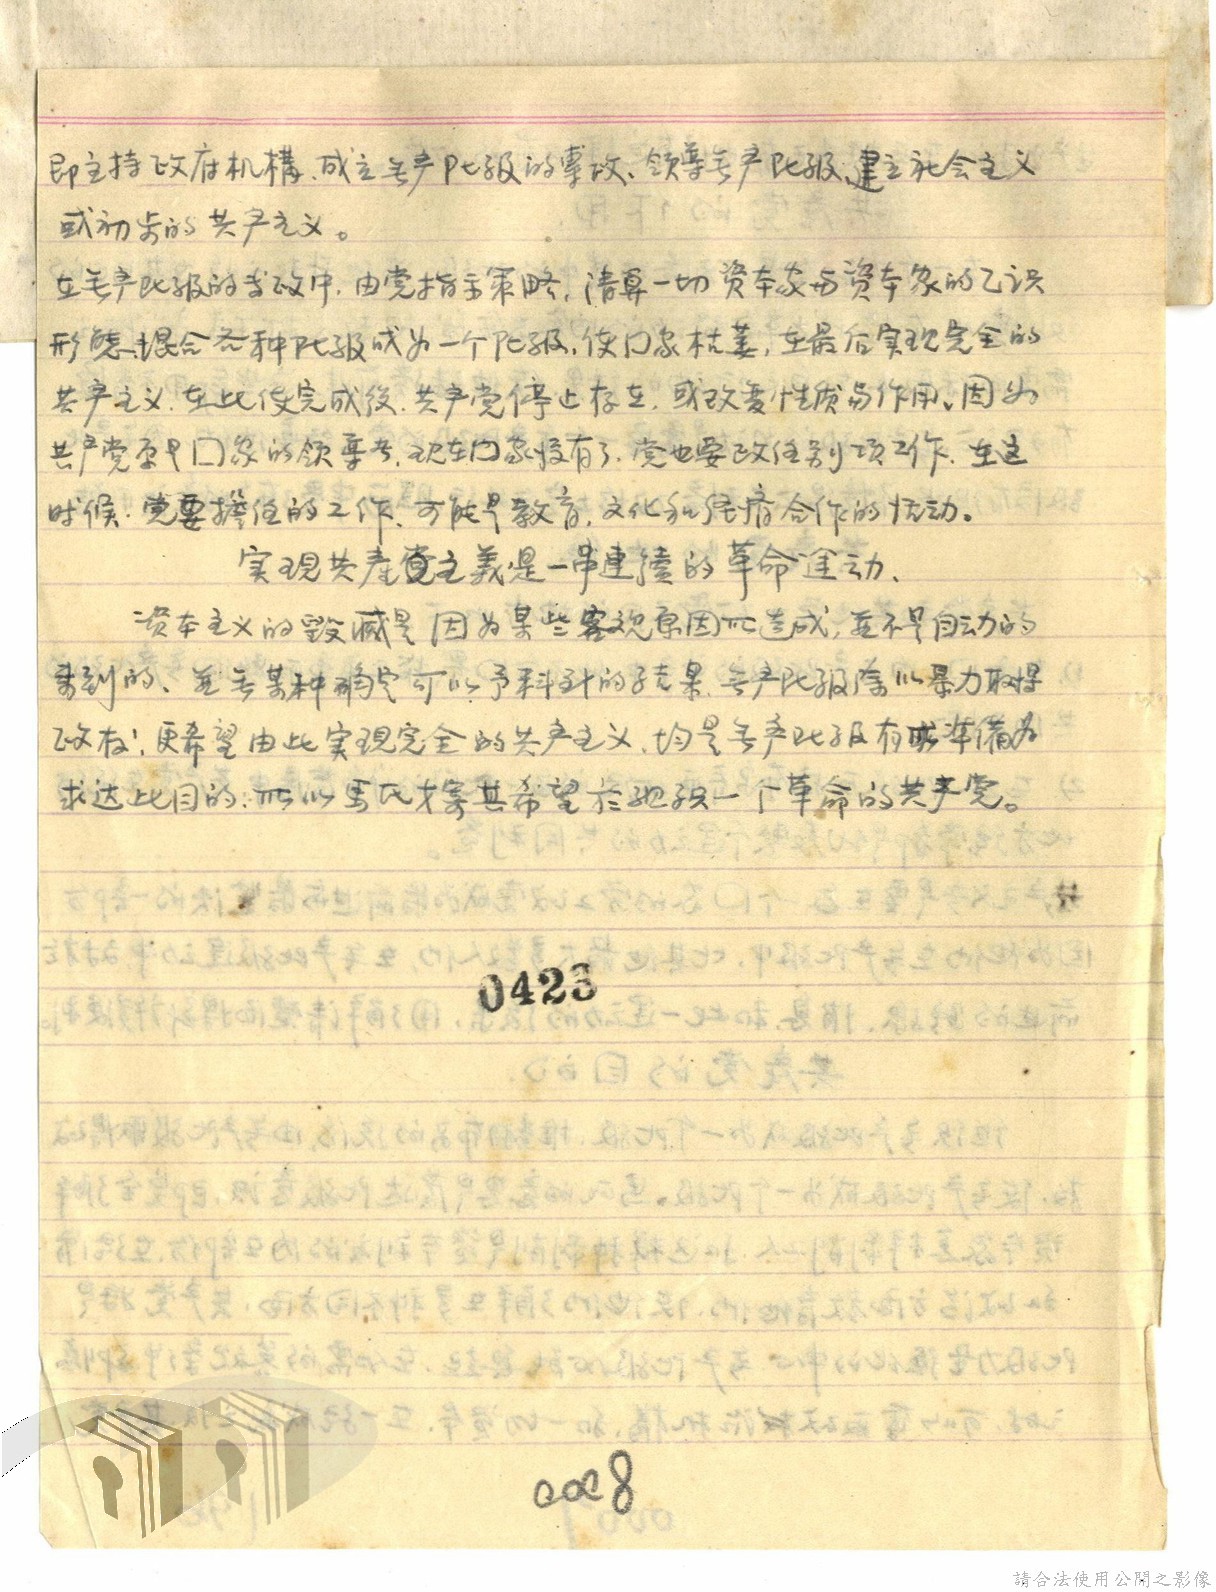 即主持政府机構、成立无产阶级的專政、領導无产阶级、建立社会主义
或初步的共产主义。
在无产阶级的专政中、由党指示策略、清算一切资本家与资本家的乙识
形態、混合各种阶级成为一个阶级、使门家枯萎、在最后实现完全的
共产主义、在此使完成後、共产党停止存在、或改变性质与作用、因为
共产党原是门家的领導者、现在门家没有了、党也要改任别项工作、在这
时候、党要擔任的工作、可能是教育、文化和经济合作的活动。
实现共産党主義是一串連續的革命运动、
资本主义的毁滅是因为某些客观原因所造成、並不是自动的
来到的、並无某种确定可以予料到的结果、无产阶级除以暴力取得
政权、更希望由此实现完全的共产主义、均是无产阶级有求準備为
求达此目的、所以马氏才寄其希望於组织一个革命的共产党。
0423
0008
請合法使用公開之影像